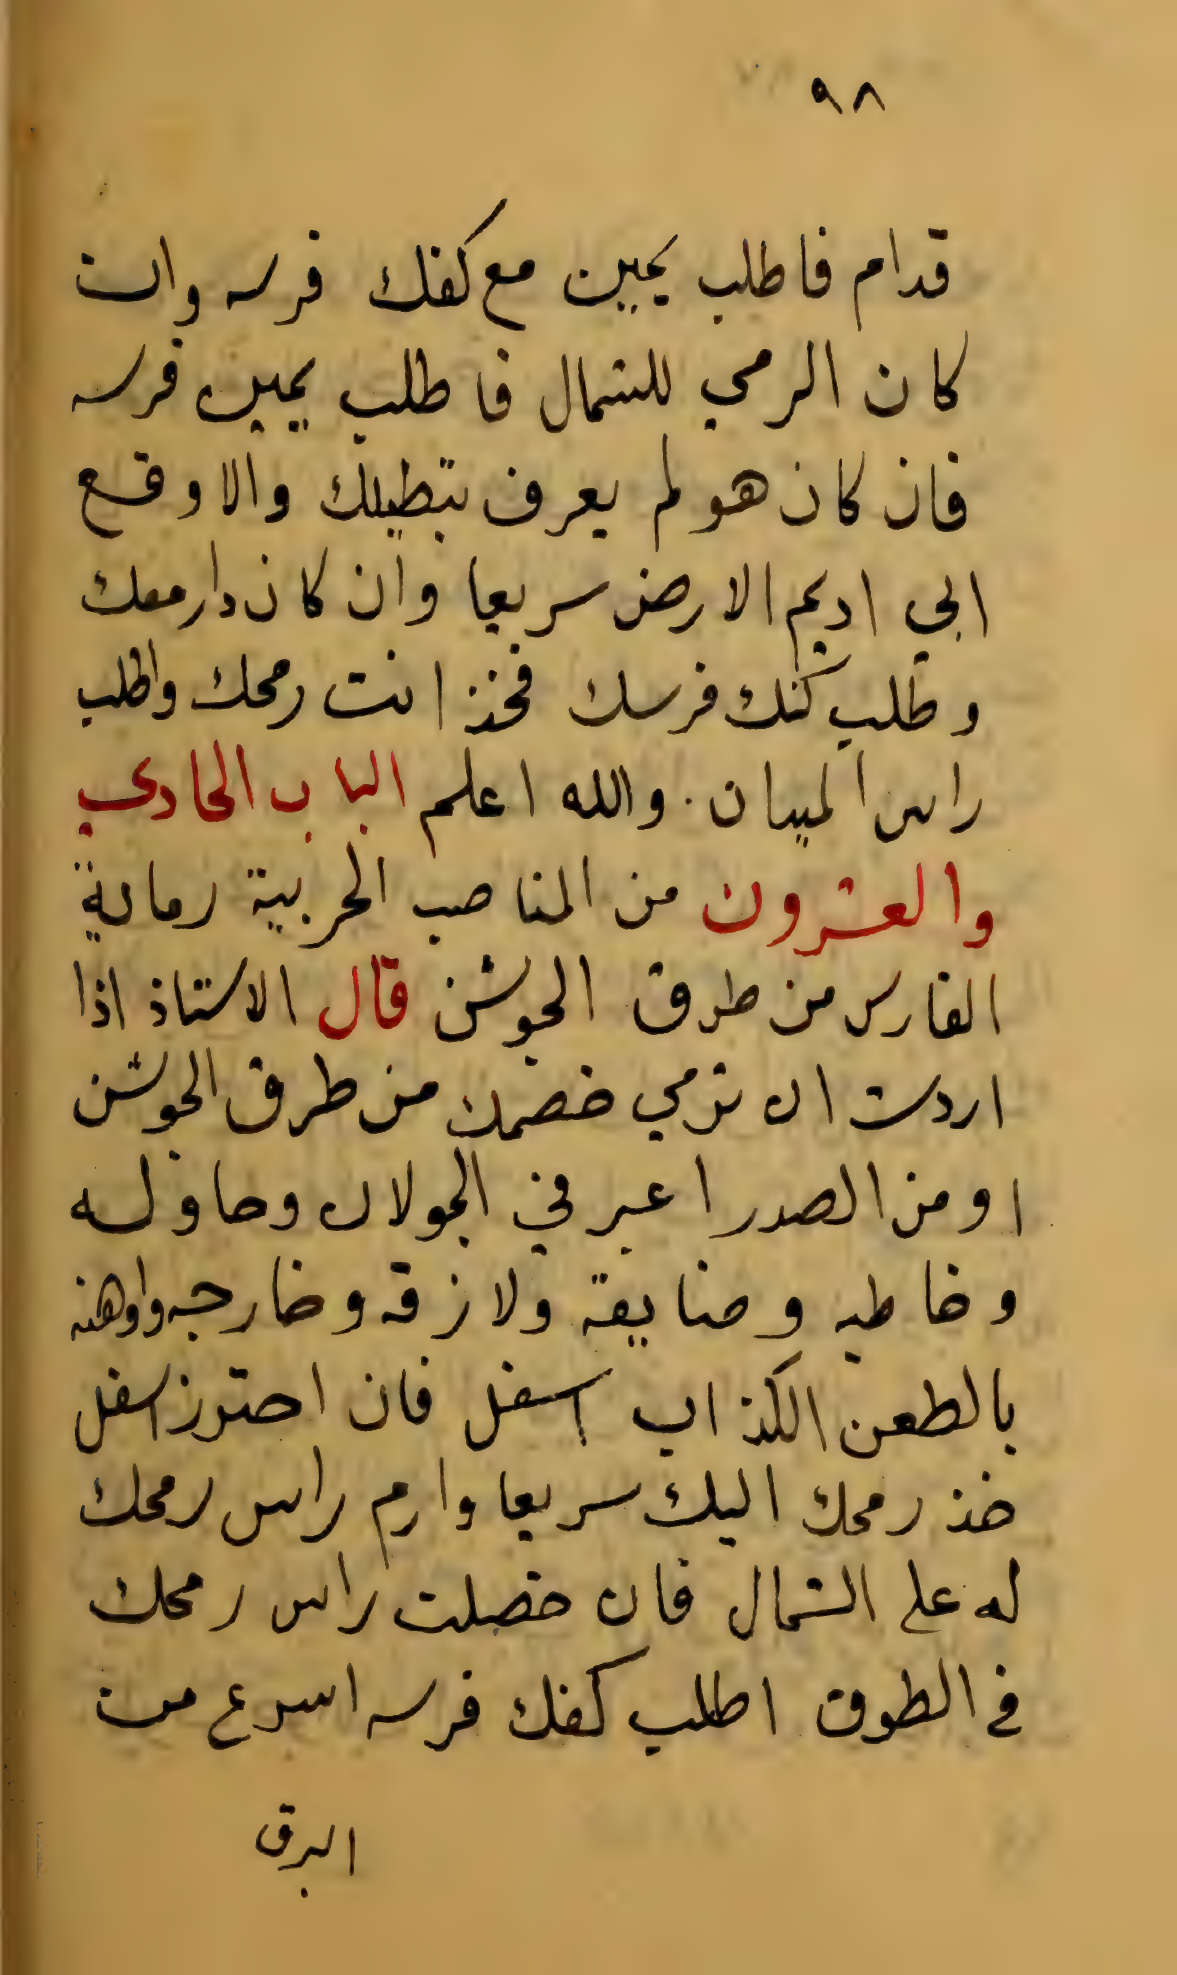 ٩٨
قدام فاطلب يمين مع كفك فرسه وان
كان الرمي للشمال فاطلب يمين فرسه
فان كان هو لم يعرف بتطيلك والا وقع
الي اديم الارض سريعا وان كان دار معك
وطلب كتك فرسك فخذ انت رمحك واطلب
راس الميدان والله اعلم الباب الحادي
والعشرون من المناصب الحربية رماية
الفارس من طرق الجوشن قال الاستاذ اذا
اردت ان ترمي خصمك من طرق الجوشن
او من الصدر اعبر في الجولان وحاوله
وخاطبه وضايقة ولازقه وخارجه واوهنه
بالطعن الكذاب اسفل فان احترز اسفل
خذ رمحك اليك سريعا وارم راس رمحك
له علي الشمال فان حصلت راس رمحك
في الطوق اطلب كفك فرسه اسرع من
البرق